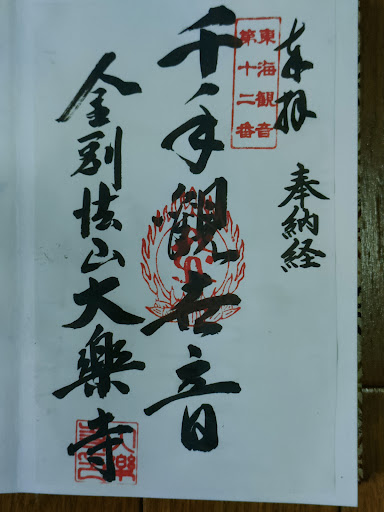 奉拝
奉納経
東海観音
第十二番
千手觀世音
金剛法山大樂寺